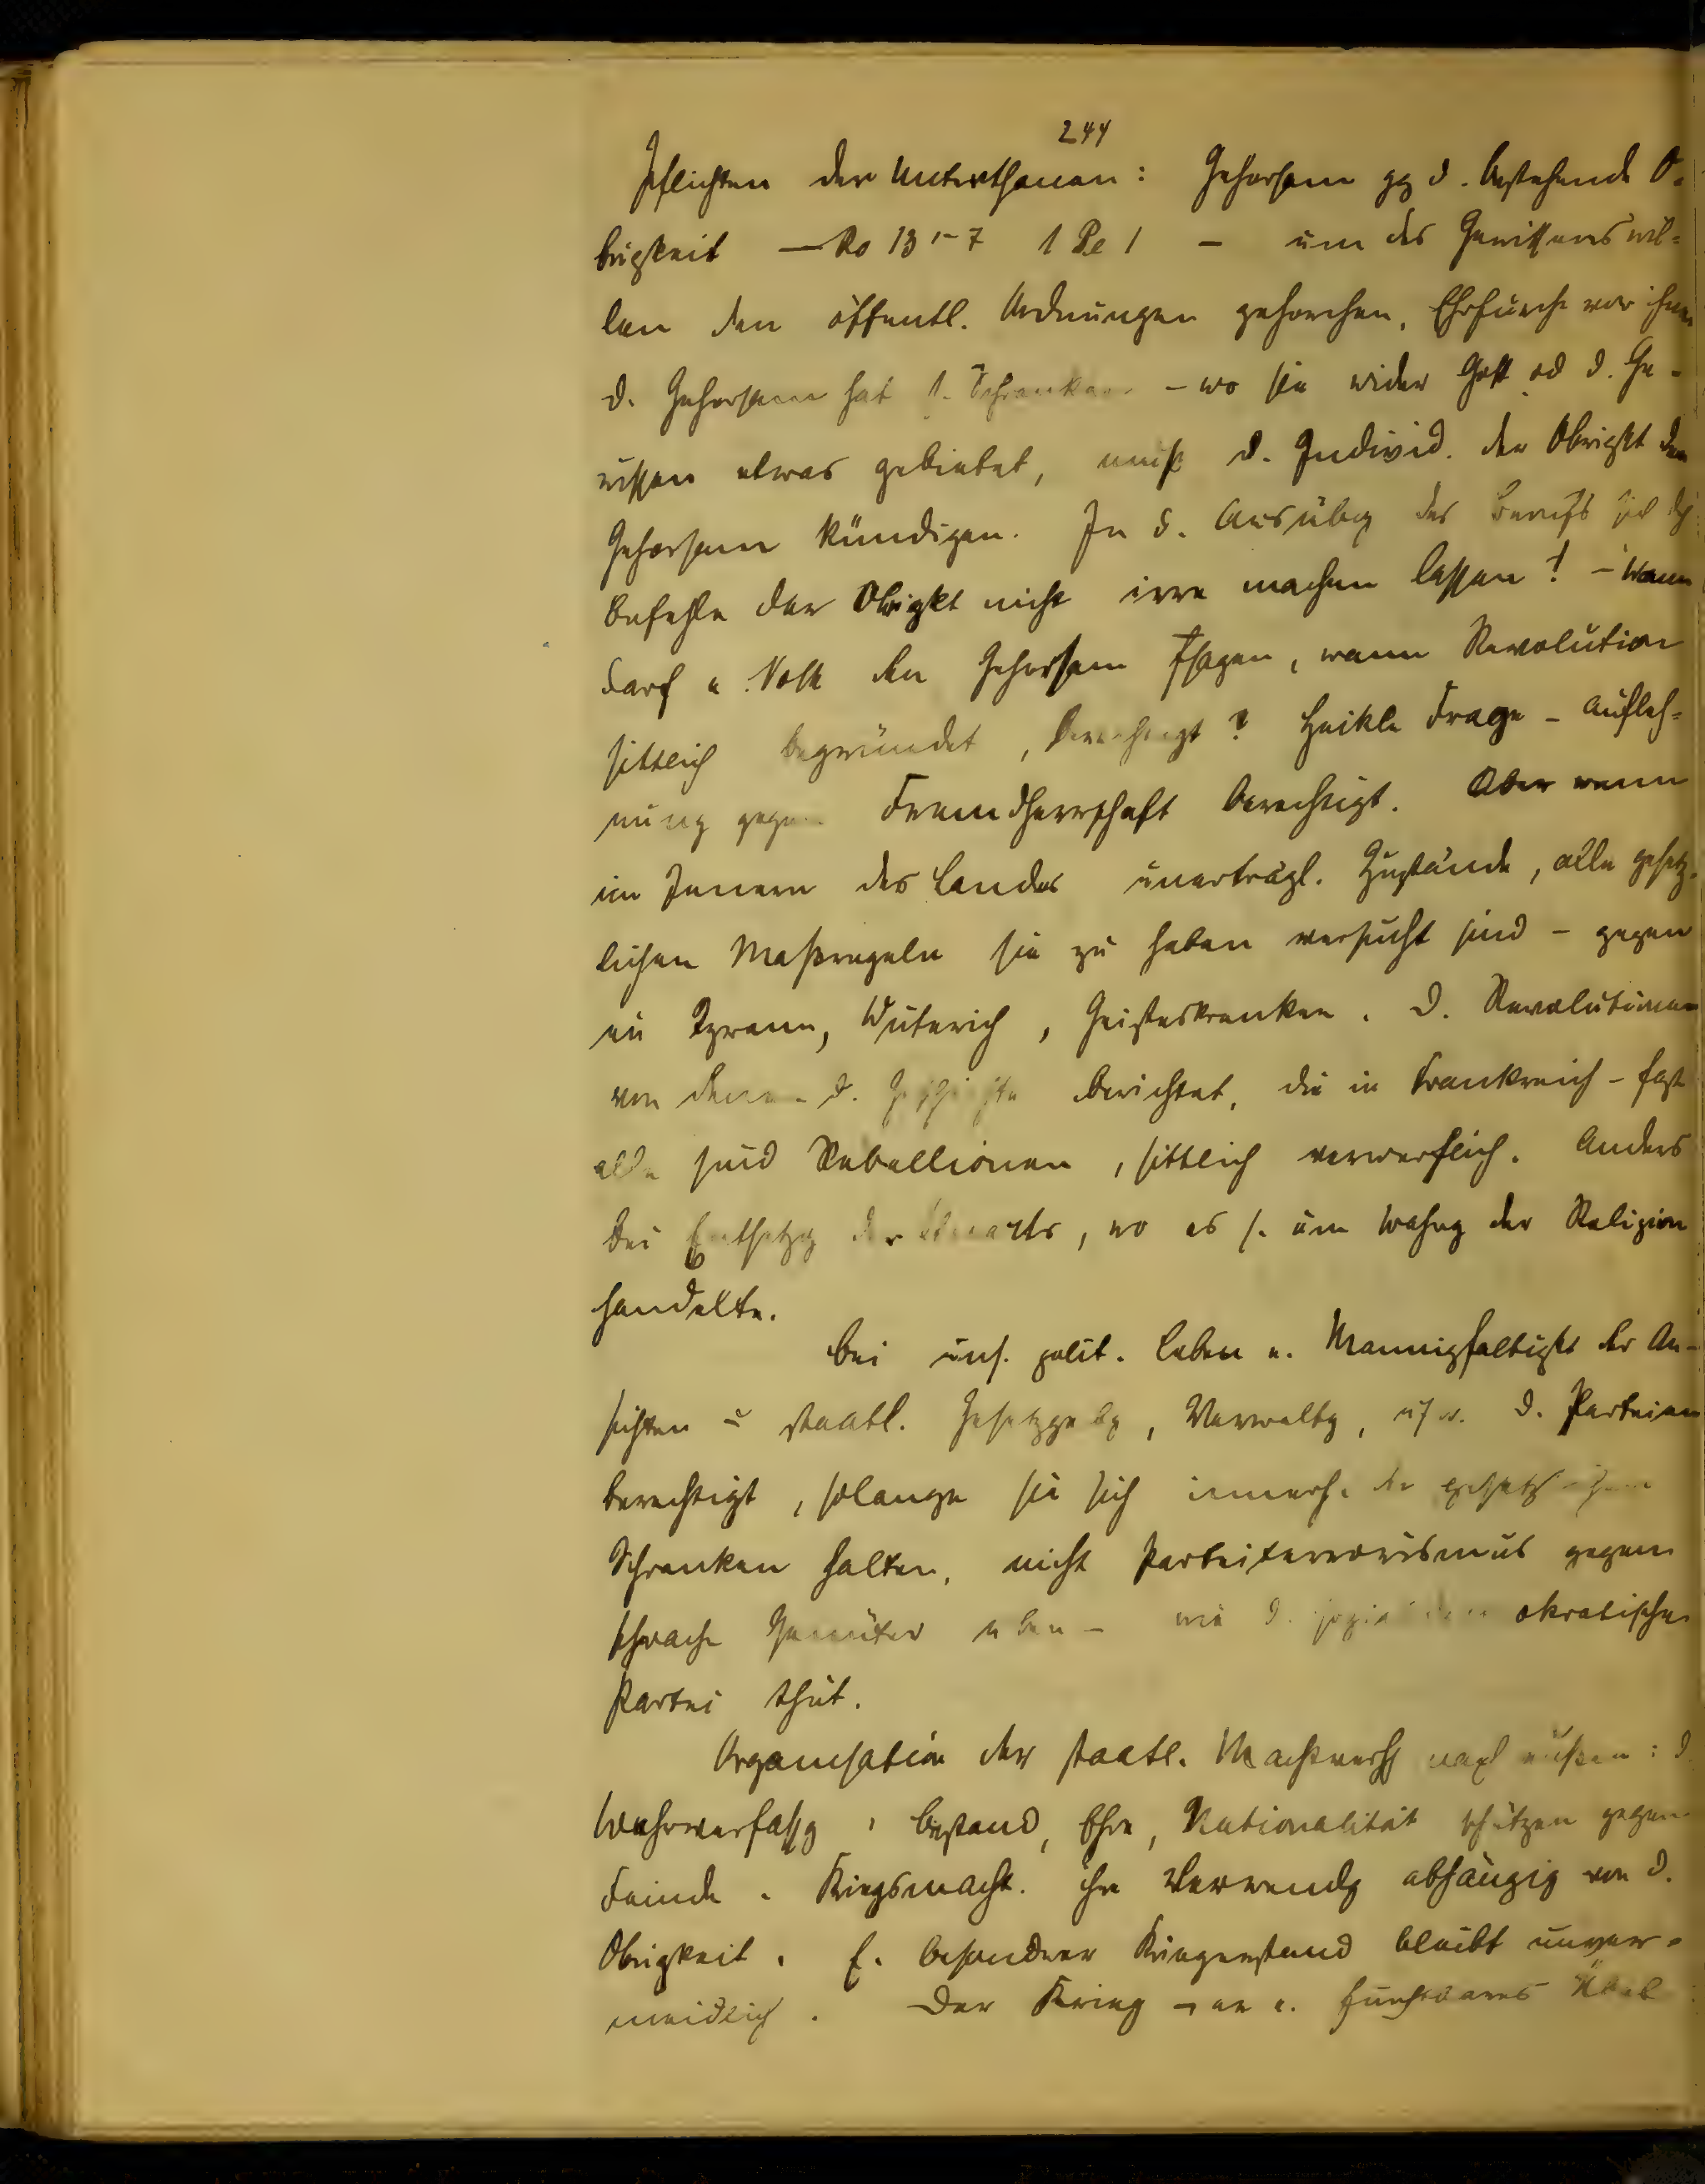 244
Pflichten der Unterthanen: Gehorsam gg d. bestehende O-
brigkeit — Ro 13 1-7 1 Pe 1 — um des Gewissens wil-
len den öffentl. Ordnungen gehorchen, Ehrfurcht vor ihnen
d. Gehorsam hat s. Schranken — wo sie wider Gott od d. Ge-
wissen etwas gebietet, muß d. Individ. der Obrigkt den
Gehorsam kündigen. In d. Ausübg des Berufs sich
Befehle der Obrigkt nicht irre machen lassen! — Wann
darf e. Volk den Gehorsam, wann Revolution
sittlich begründet, berechtigt? Heikle Frage — Aufleh-
nung gegen Fremdherrschaft berechtigt. Aber wenn
im Innern des Landes unerträgl. Zustände, alle gesetz-
lichen Maßregeln sie zu heben versucht sind — gegen
ein Tyrann, Wüterich, Geisteskranken. D. Revolutionen
von denen d. Geschichte berichtet, die in Frankreich — fast
alle sind Rebellionen, sittlich verwerflich. Anders
bei Entsetzg der Stuarts, wo es s. um Wahrg der Religion
handelte.
Bei uns. polit. Leben e. Mannigfaltigkt der An-
sichten ü staatl. Gesetzgebg, Verwaltg, usw. D. Parteien
berechtigt, solange sie sich innerh. der gesetzlichen
Schranken halten, nicht Parteiterrorismus gegen
schwache Gemüter üben — wie d. sozialdemokratische
Partei thut.
Organisation der staatl. nach außen: d
Wehrverfassg, Bestand, Ehre, Nationalität schützen gegen
Feinde. Kriegsmacht. ihre Verwendg abhängig von d.
Obrigkeit. E. besonderer Kriegerstand bleibt unver-
meidlich. Der Krieg e. furchtbares Übel